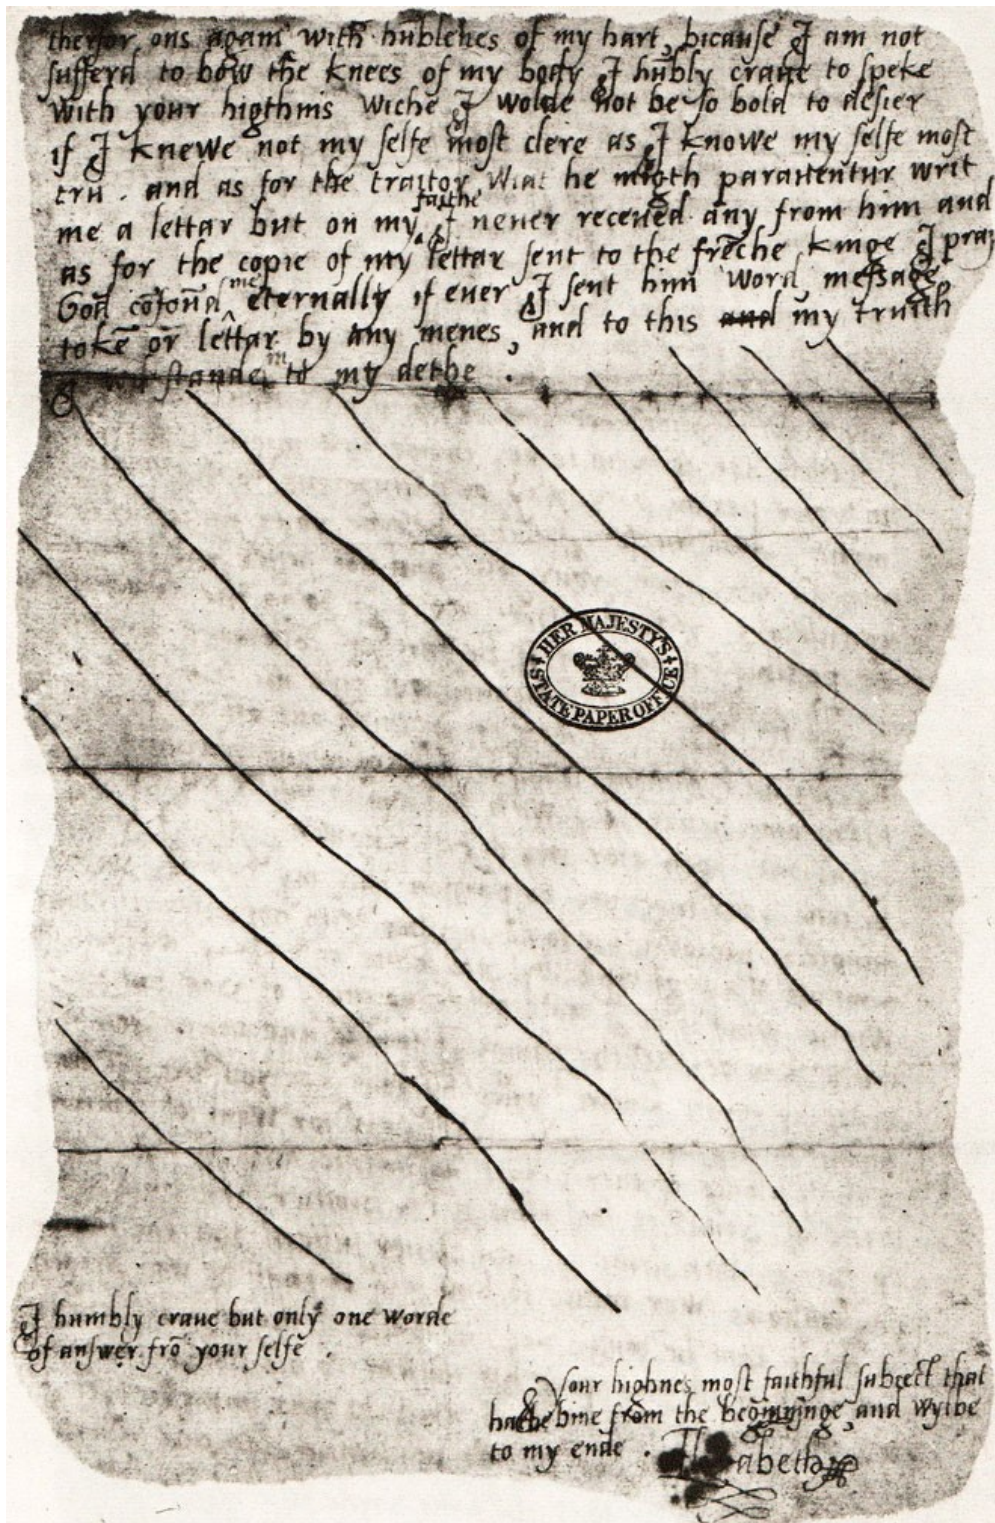 therfor ons again with hūblenes of my hart, bicause I am not
sufferd to bow the knees of my body I hūbly crave to speke
with your higthnis wiche I wolde not be so bold to desier
if I knewe not my selfe most clere as I knowe my selfe most
tru. and as for the traitor Wiat he migth paraventur writ
me a lettar but on my faithe I never receved any from him and
as for the copie of my lettar sent to the frēche kinge I pray
God cōfoūd me eternally if ever I sent him word, message,
tokē or lettar by any menes, and to this and my truith
I wil stande in to my dethe.
HER MAJESTY'S
STATE PAPER OFFICE
I humbly crave but only one worde
of answer frō your selfe.
Your highnes most faithful subject that
hathe bine from the beginninge, and wylbe
to my ende.
Elizabeth